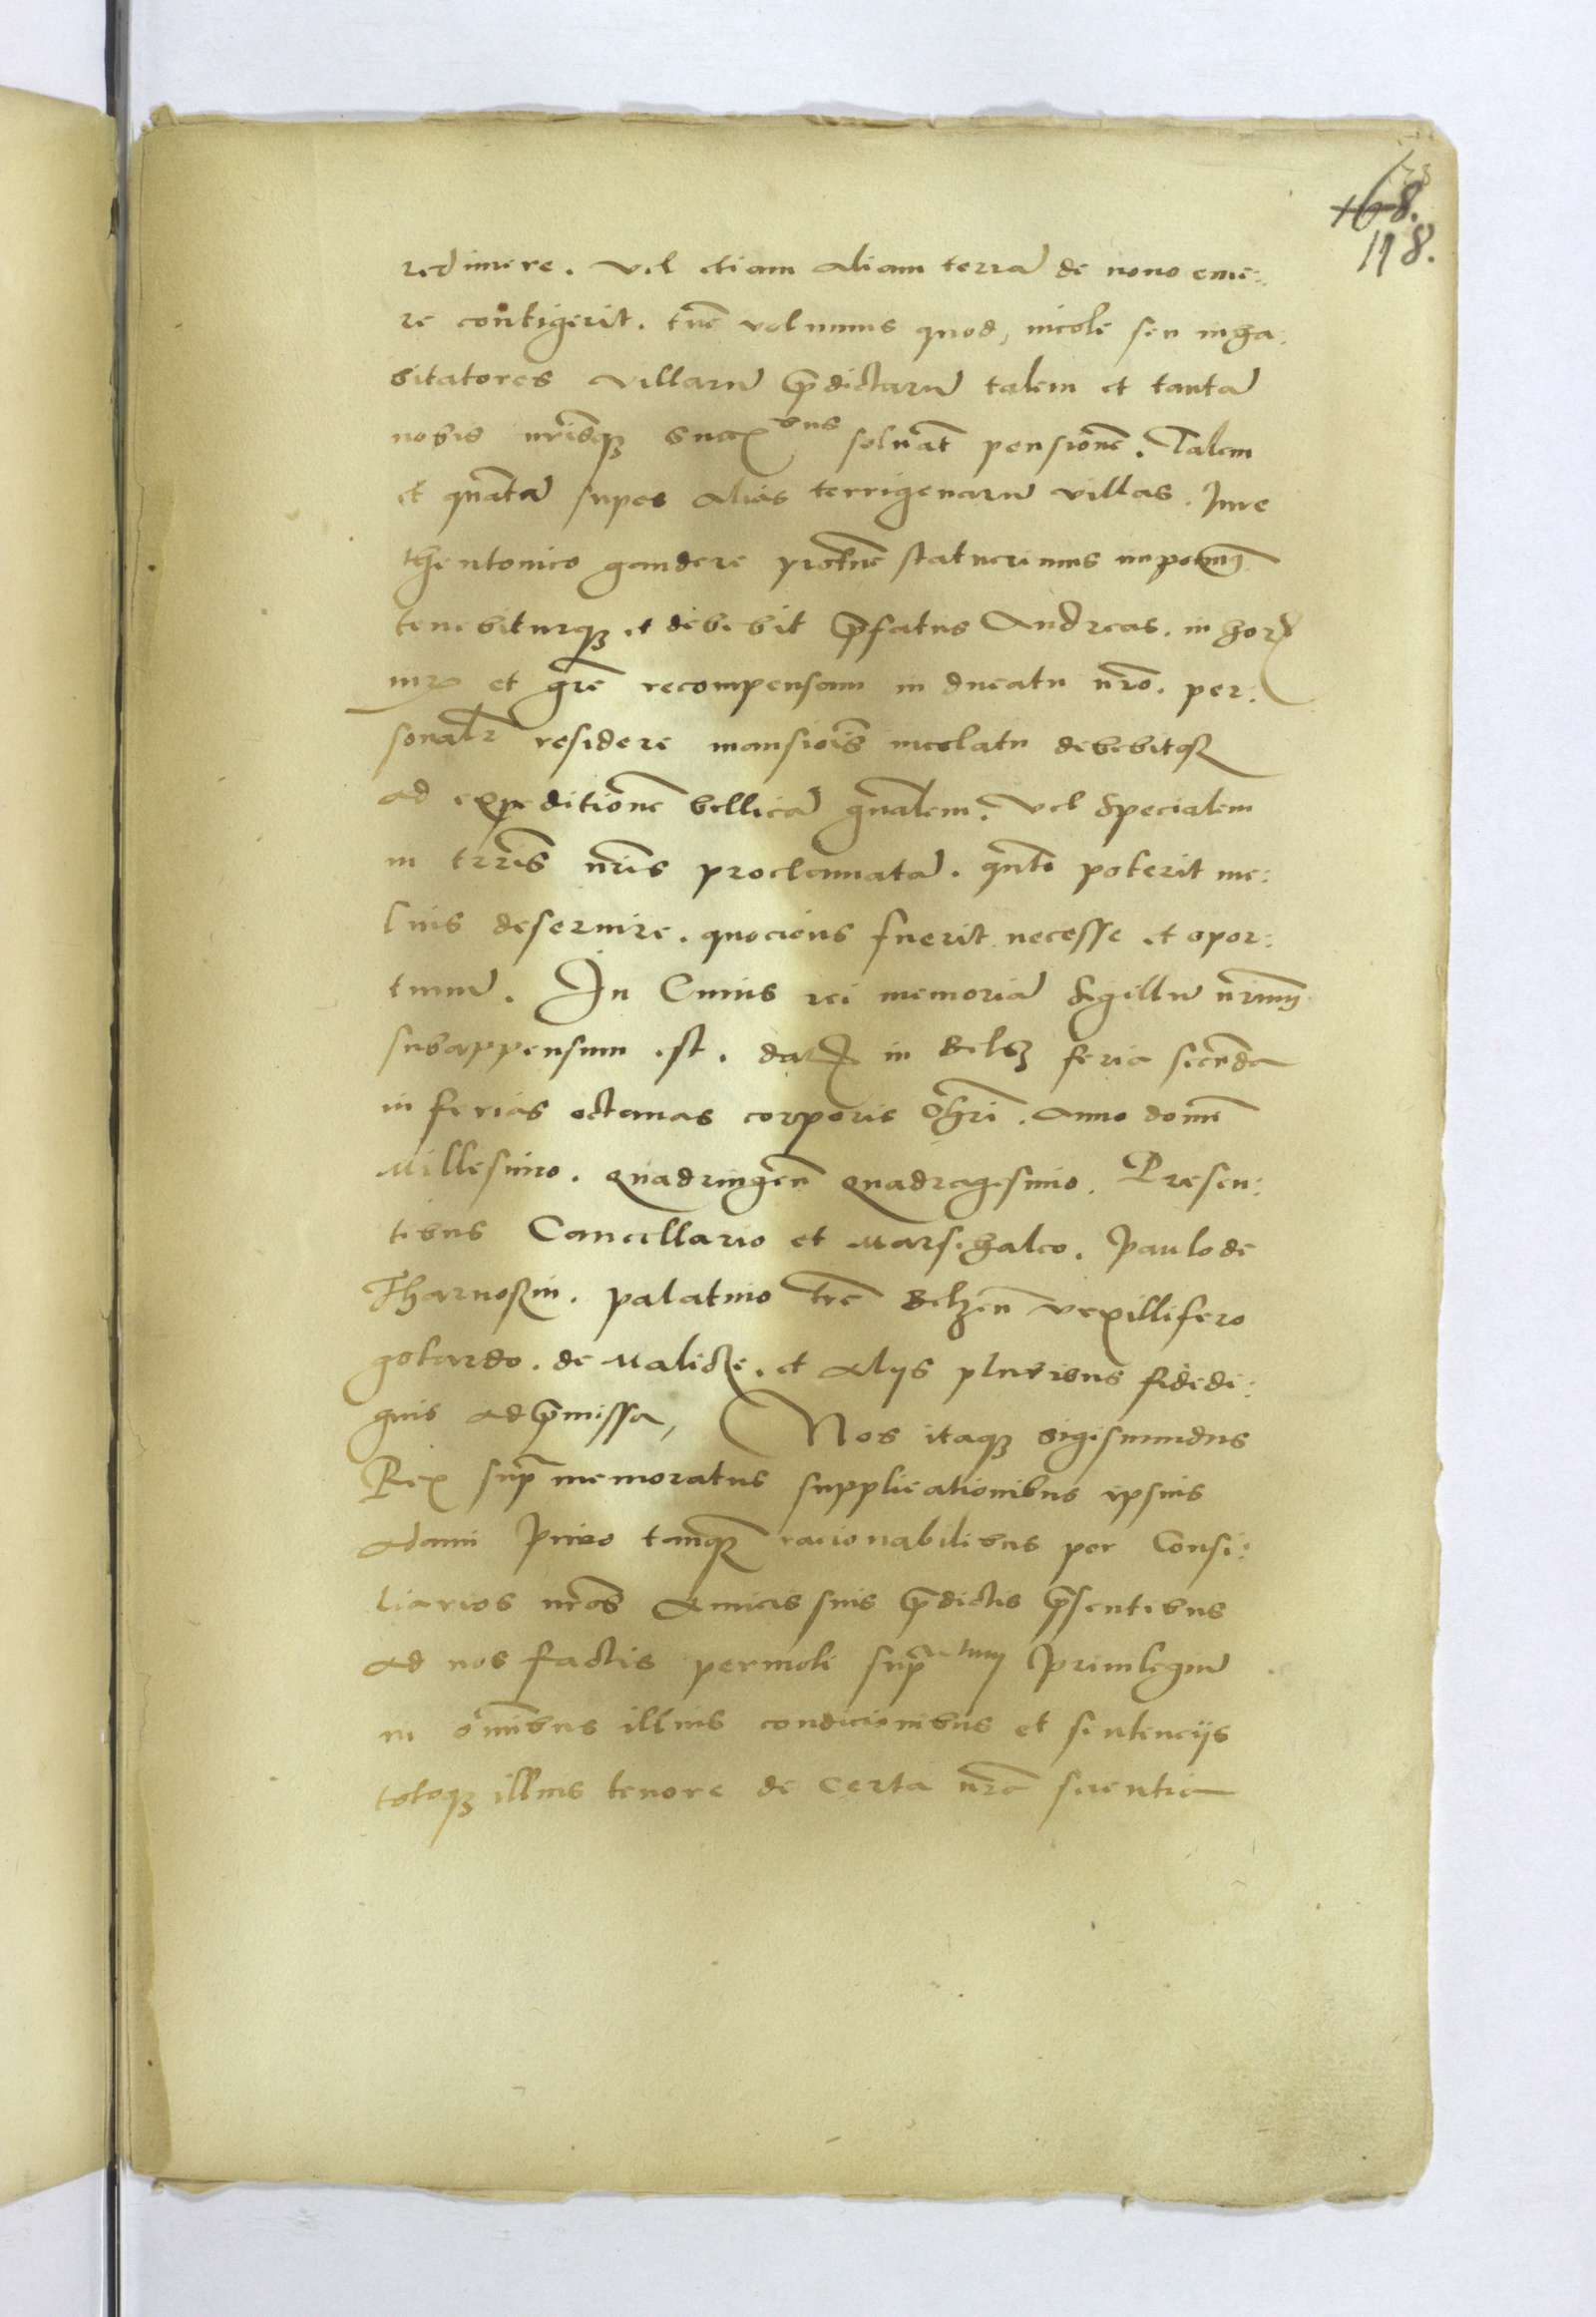 168.
118.
redimere. vel etiam aliam terrã de nouo eme:
re contigerit. tũc volumus quod, incole seu inha:
bitatores villarũ p̃dictarũ talem et tantã
nobis nr̃isq₃ succ bus soluãt pensionẽ. Talem
et quãtã super alias terrigenarũ villas. Jure
theutonico gaudere statuerimus
tenebiturq₃ et debebit p̃fatus Andreas. in hor
et gr̃e recompensam in ducatu nr̃o. per:
sonalr̃ residere mansiõis incolatu debebitq₃
ad expeditionẽ bellicã gñalem. vel specialem
in terr̃is nr̃is proclamatã. quãto poterit me:
lius deseruire. quociens fuerit necesse et opor:
tunũ. In Cuius rei memoriã sigillũ nr̃um
subappensum est. dat in Belsz feria secũda
in ferias octauas corporis Chr̃i. anno domĩ
Millesimo. quadringeñ quadragesimo. Presen:
tibus Cancellario et Marschalco. Paulo de
Tharnoszin. palatino tr̃e Belzeñ vexillifero
gotardo. de Malicze. et alijs pluribus fidedi:
gnis ad p̃missa, Nos itaq₃ Sigismundus
Rex sup̃ memoratus supplicationibus ipsius
adami tanq₃ racionabilibus per Consi:
liarios nr̃os Amicis suis p̃dictis p̃sentibus
ad nos factis permoti sup̃ tum Priuilegiũ
in oĩnibus illius condicionibus et sentencijs
totoq₃ illius tenore de certa nr̃a scientia